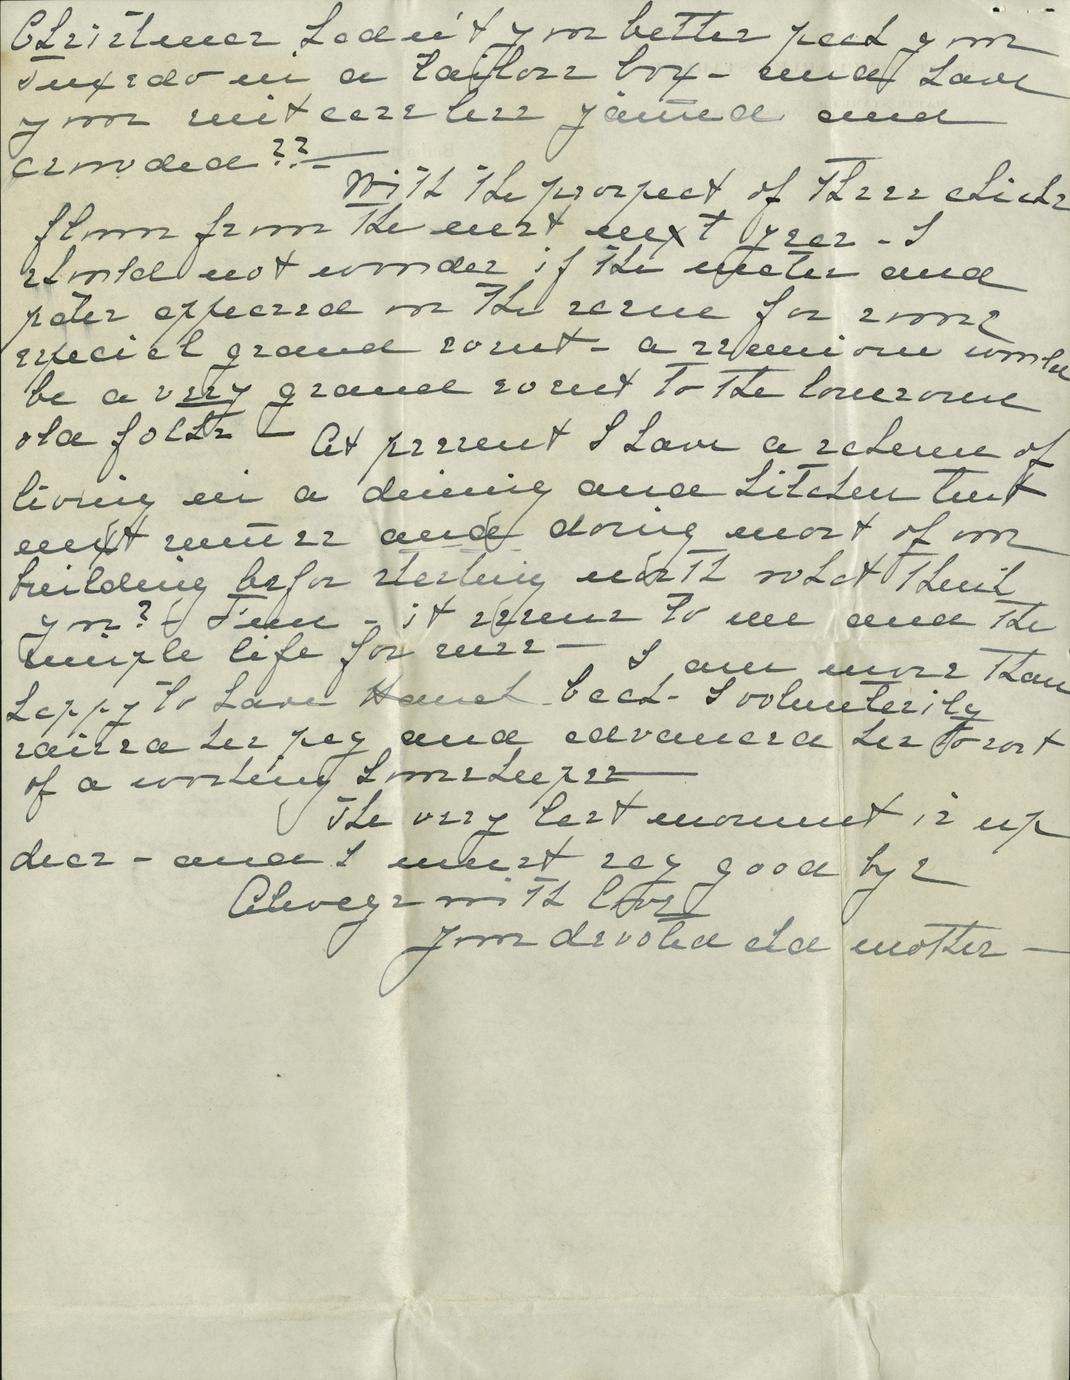 Christmas hadn't you better pack your
Tuxedo in a tailors box - and have
your suitcase less jamed and
crowded?? —
With the prospect of three chicks
flown from the nest next year - I
should not wonder if the mater and
pater appeared on the scene for some
special grand event - a reunion would
be a very grand event to the lonesome
old folks — At present I have a scheme of
living in a dining and kitchen tent
next winter and doing most of our
building before starting north what think
you? - Fun - it seems to me and the
simple life for sure —
I am more than
happy to have back - I voluntarily
raised her pay and advanced her to sort
of a working housekeeper —
The very last moment is up
dear - and I must say good bye
Always with love
Your devoted old mother —